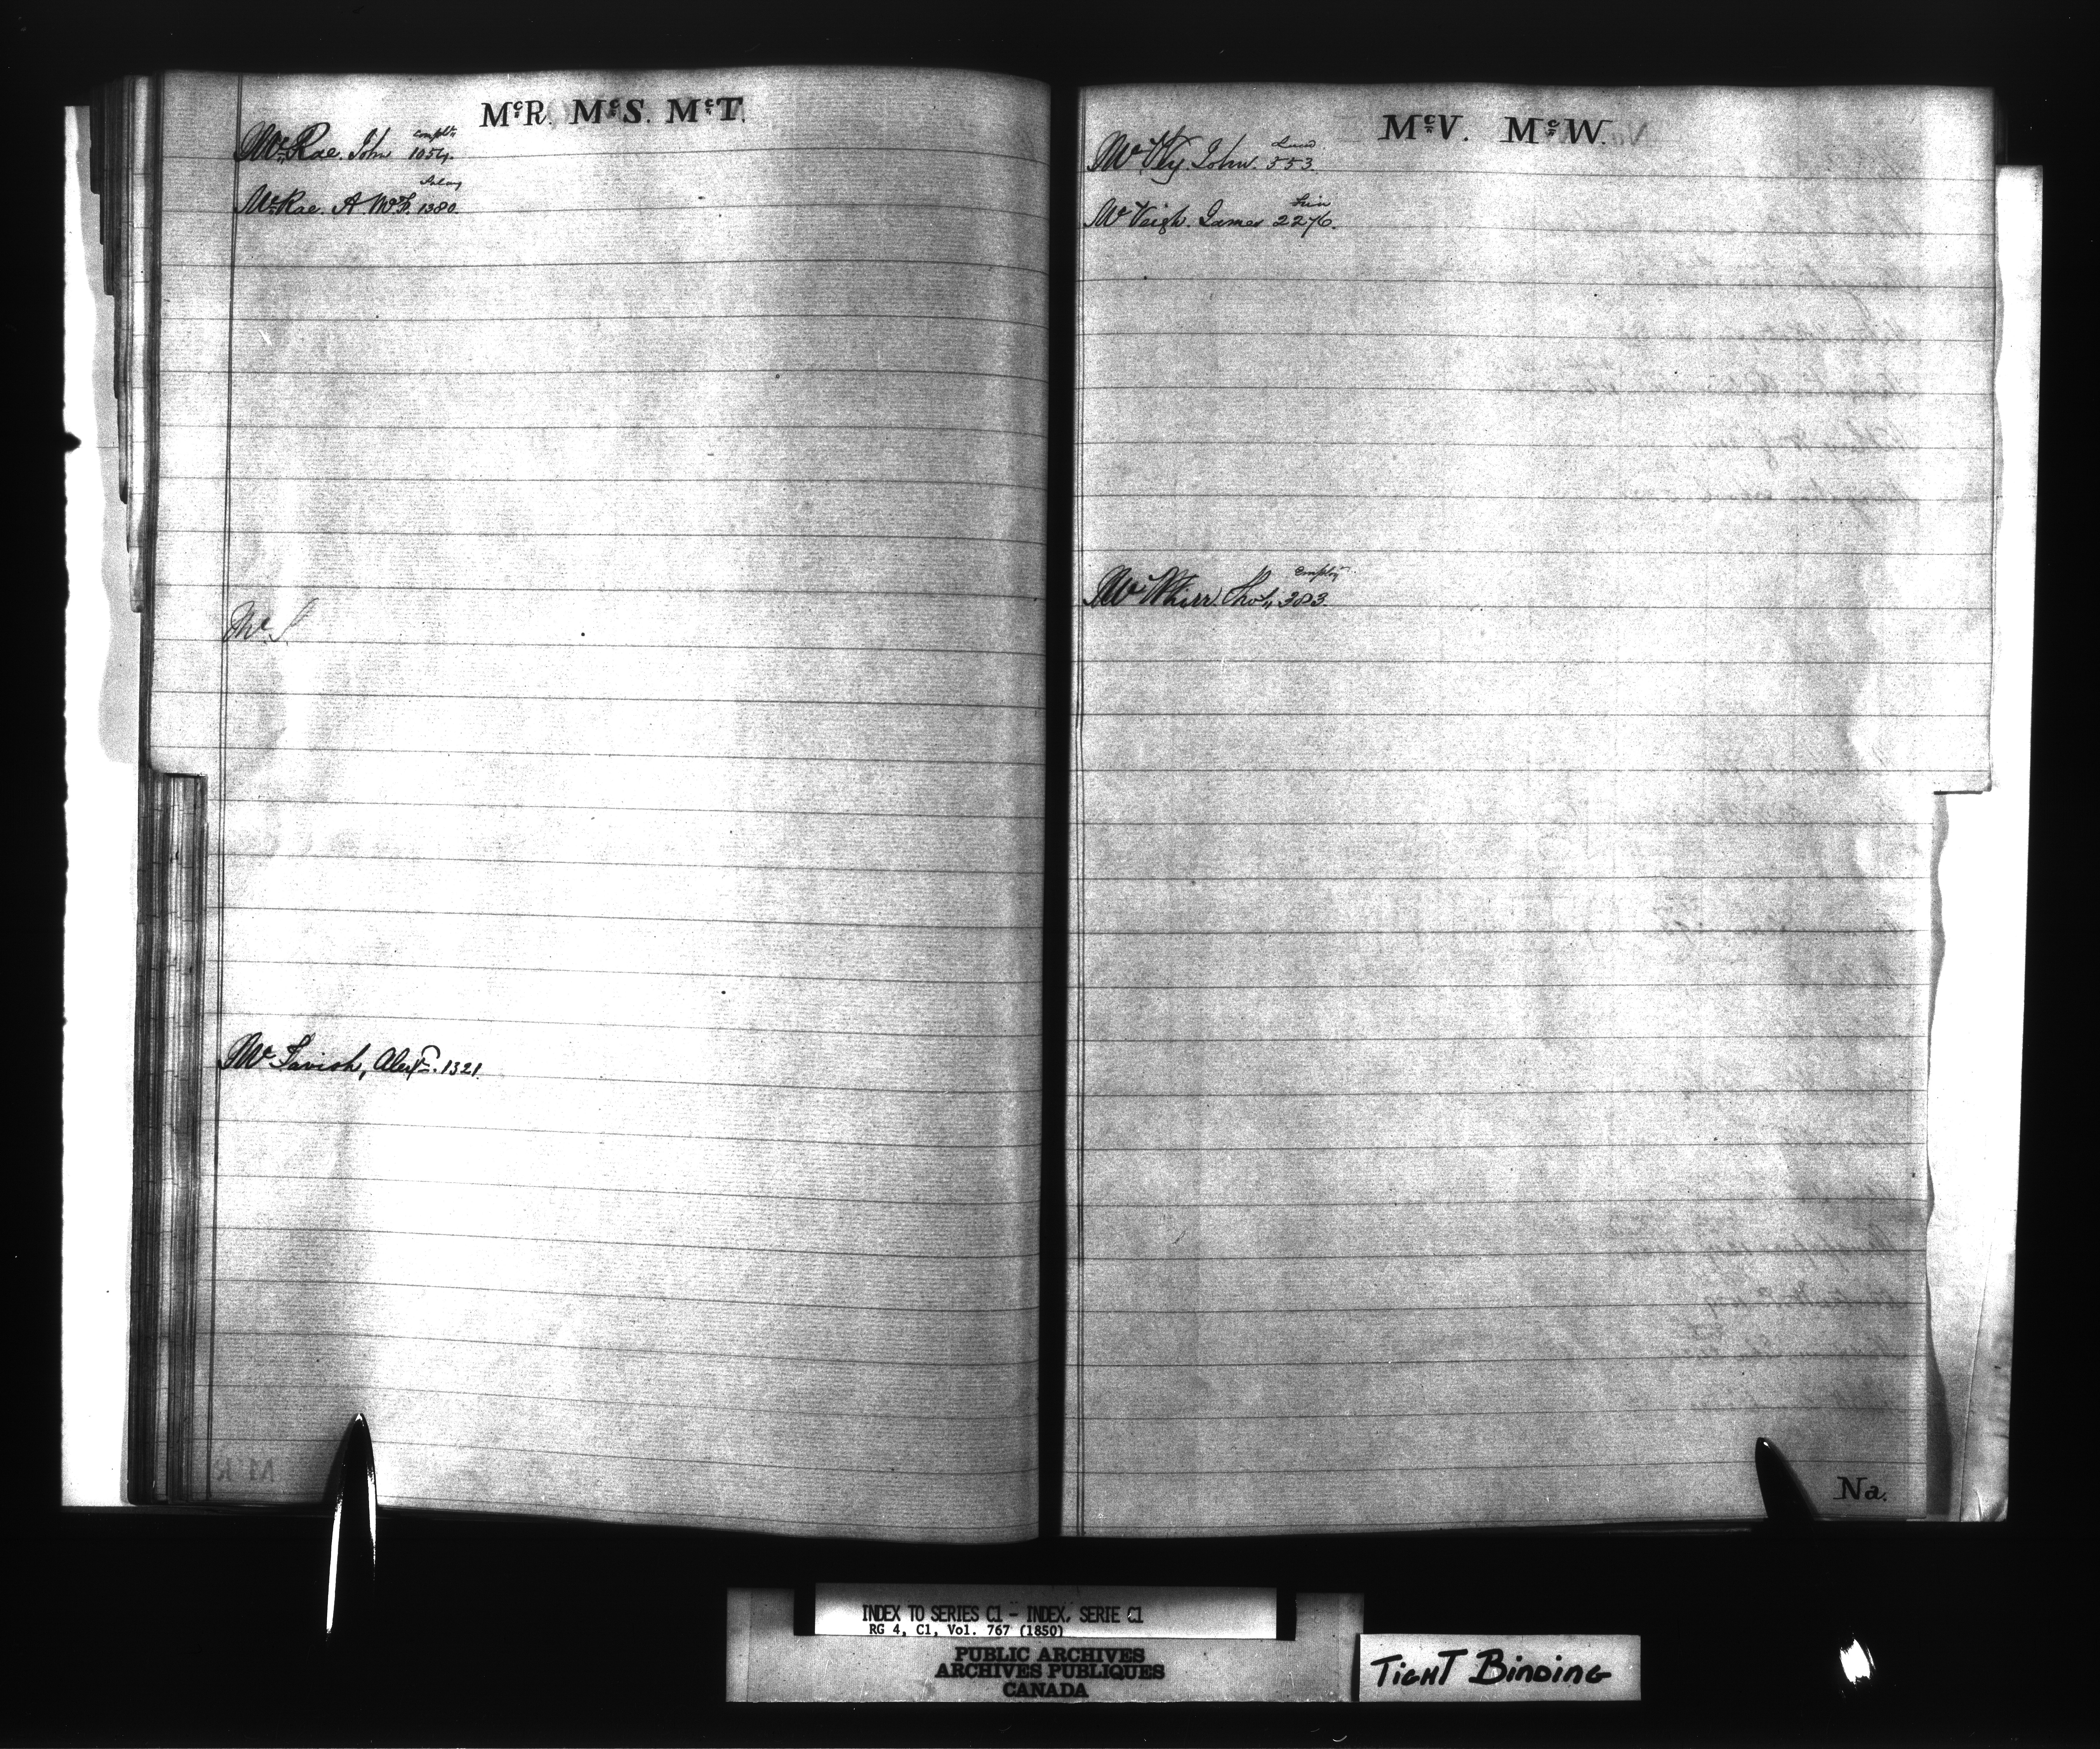 McR. McS. McT.
complt
McRae. John 1054.
Salary
McRae. A. McF. 1380
McS
McTavish, Alexr. 1321
McV. McW.
McVey. John. 553.
McVeigh. James 2276.
employt
McWhirr Thos. 383.
Na.
INDEX TO SERIES C1 - INDEX, SERIE C1
RG 4, C1, Vol. 767 (1850)
PUBLIC ARCHIVES
ARCHIVES PUBLIQUES
CANADA
TIGHT BINDING